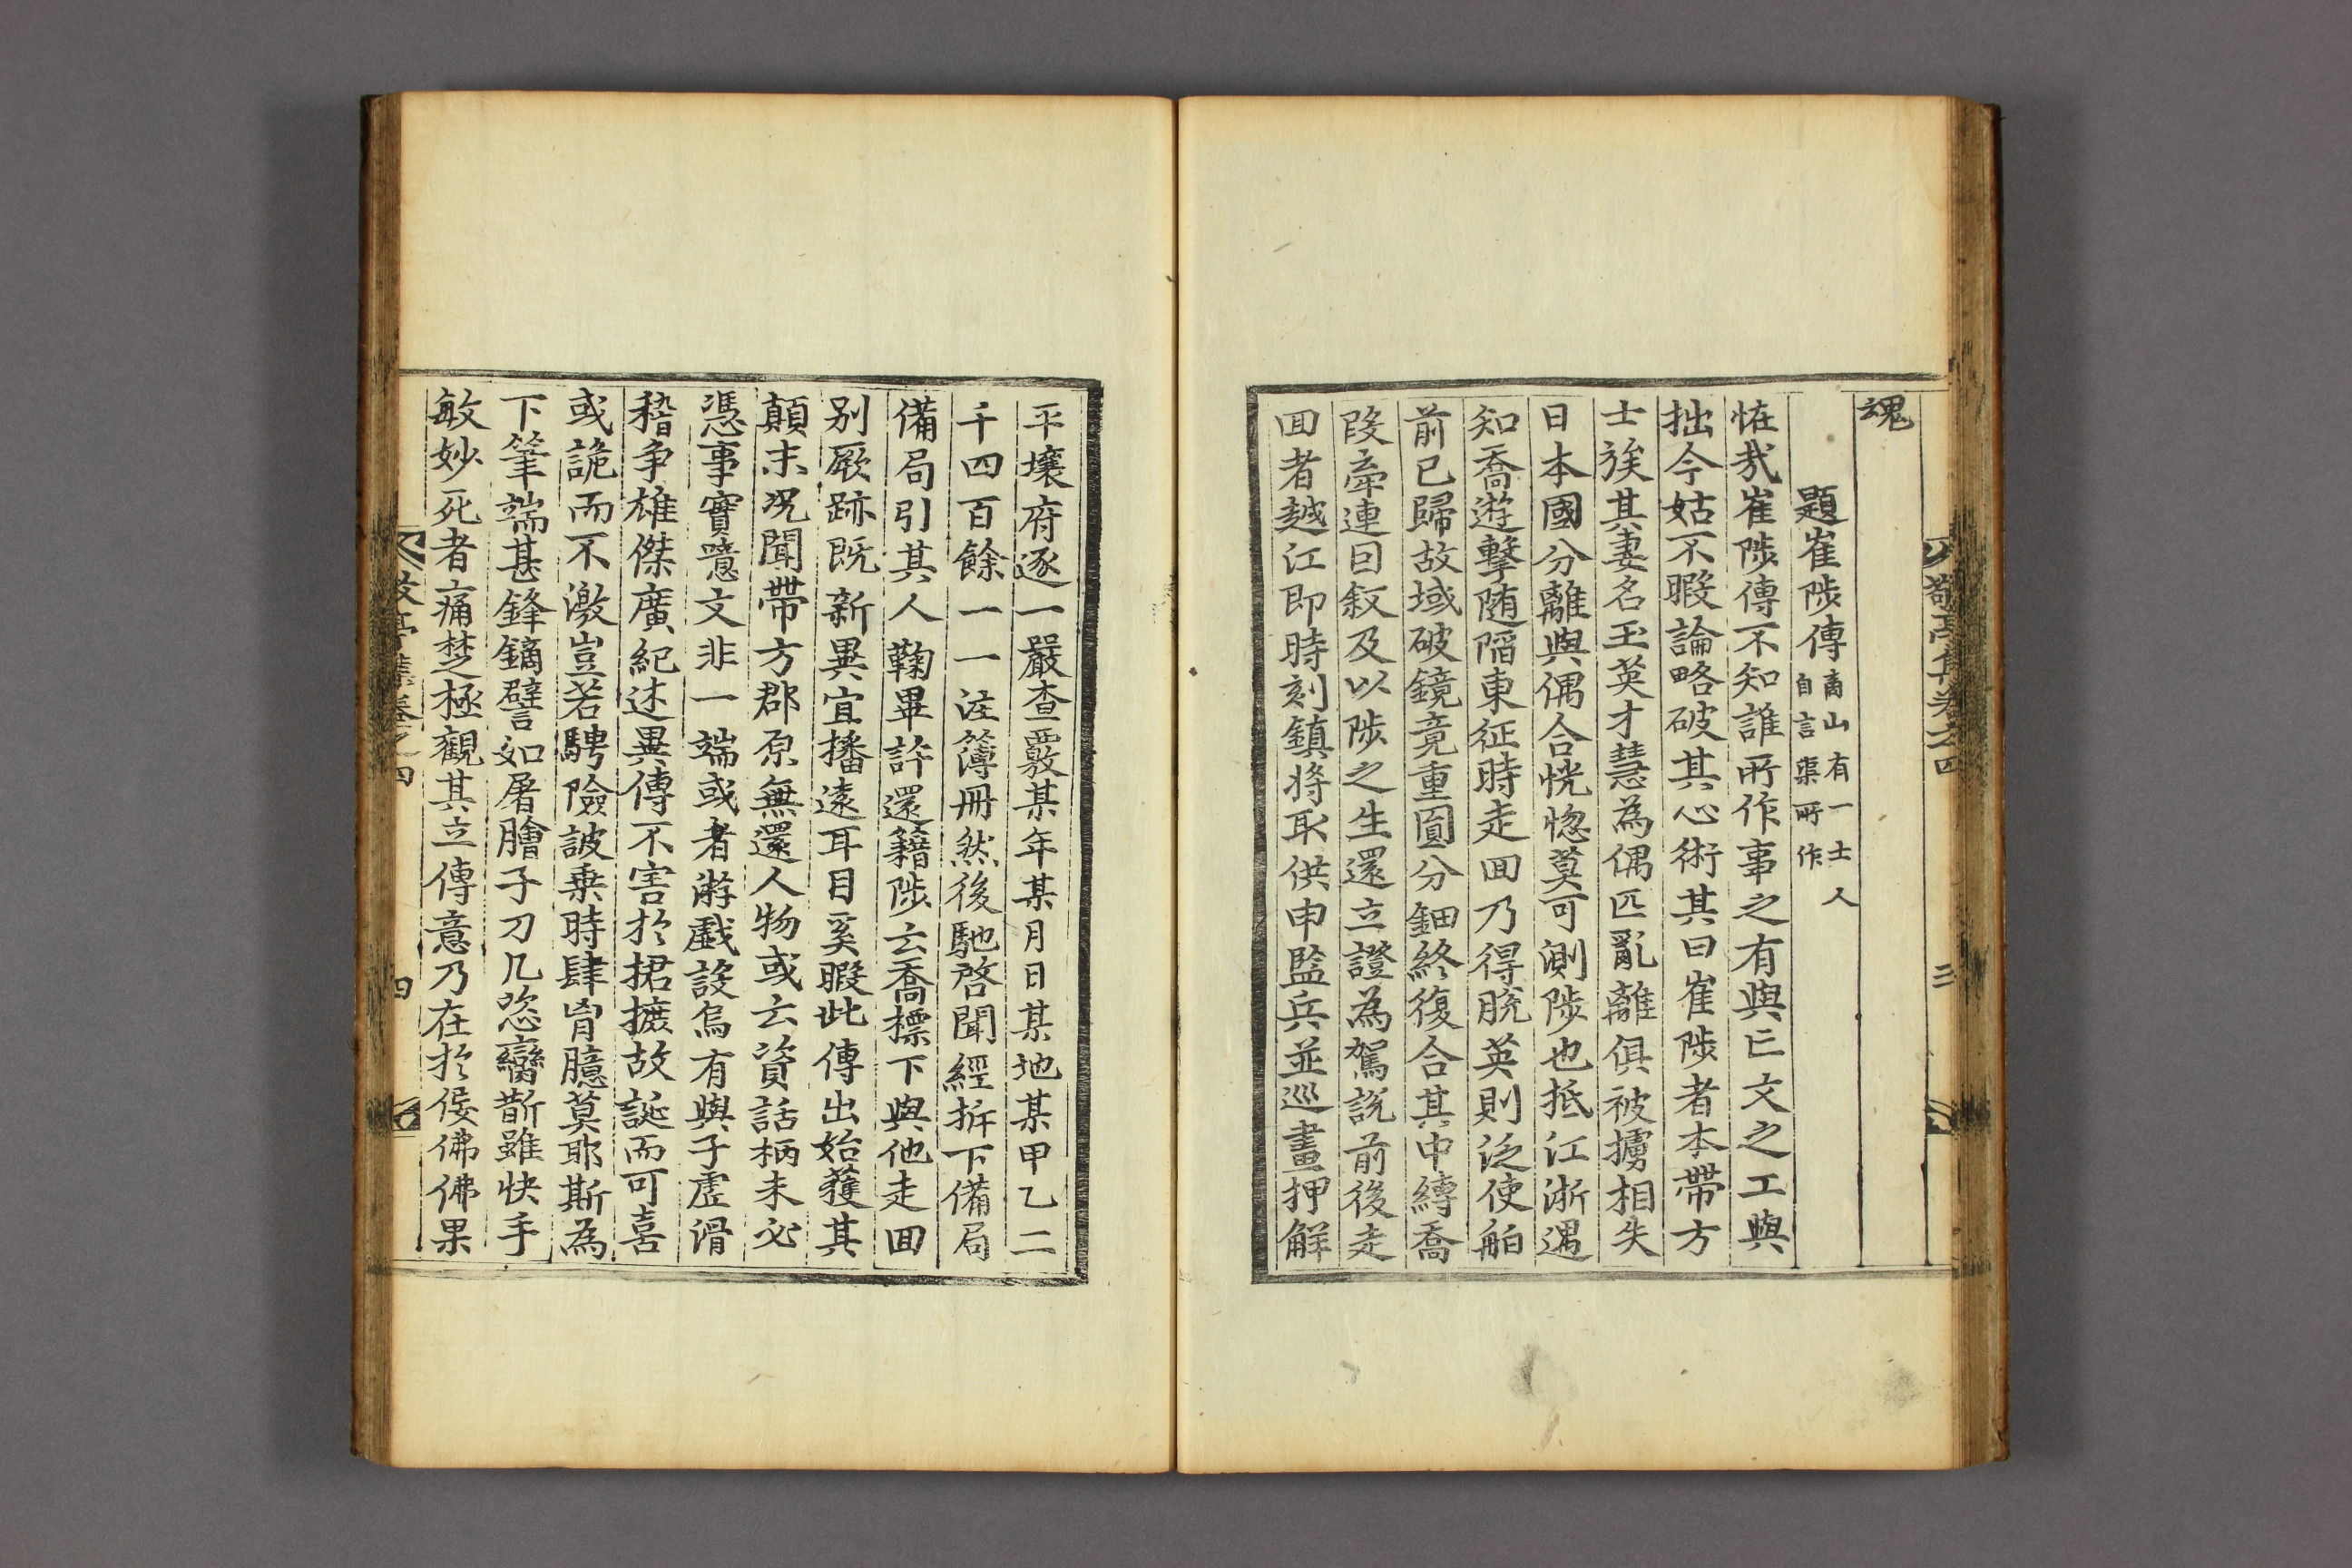 敬亭集卷之四
三
魂
題崔陟傳 南山有一士人
自言渠所作
恠㢤崔陟傳不知誰所作事之有與亡文之工與
拙今姑不暇論略破其心術其曰崔陟者本帶方
士族其妻名玉英才慧為偶匹亂離俱被擄相失
日本國分離與偶合恍惚莫可測陟也抵江浙遇
知喬遊擊随陷東征時走囬乃得脫英則泛使舶
前已歸故域破鏡竟重圓分鈿終復合其中縳喬
段牽連目叙及以陟之生還立證為駕說前後走
囬者越江即時刻鎮将取供申監兵並巡畫押觧
平壤府逐一嚴查覈某年某月日某地某甲乙二
千四百餘一一注簿冊然後馳啓聞經拆下備局
備局引其人鞫畢許還籍陟云喬摽下與他走囬
别厥跡既新異宜播遠耳目奚暇此傳出始獲其
顛末况聞帶方郡原無還人物或云資話柄未必
憑事實噫文非一端或者游戱設烏有與子虛滑
稽争雄傑廣紀述異傳不害於捃摭故誕而可喜
或詭而不激豈若騁險詖乗時肆胷臆莫耶斯為
下筆端甚鋒鏑譬如屠膾子刀几恣臠斮雖快手
敏妙死者痛楚極觀其立傳意乃在於倭佛佛果
敬亭集卷之四
四